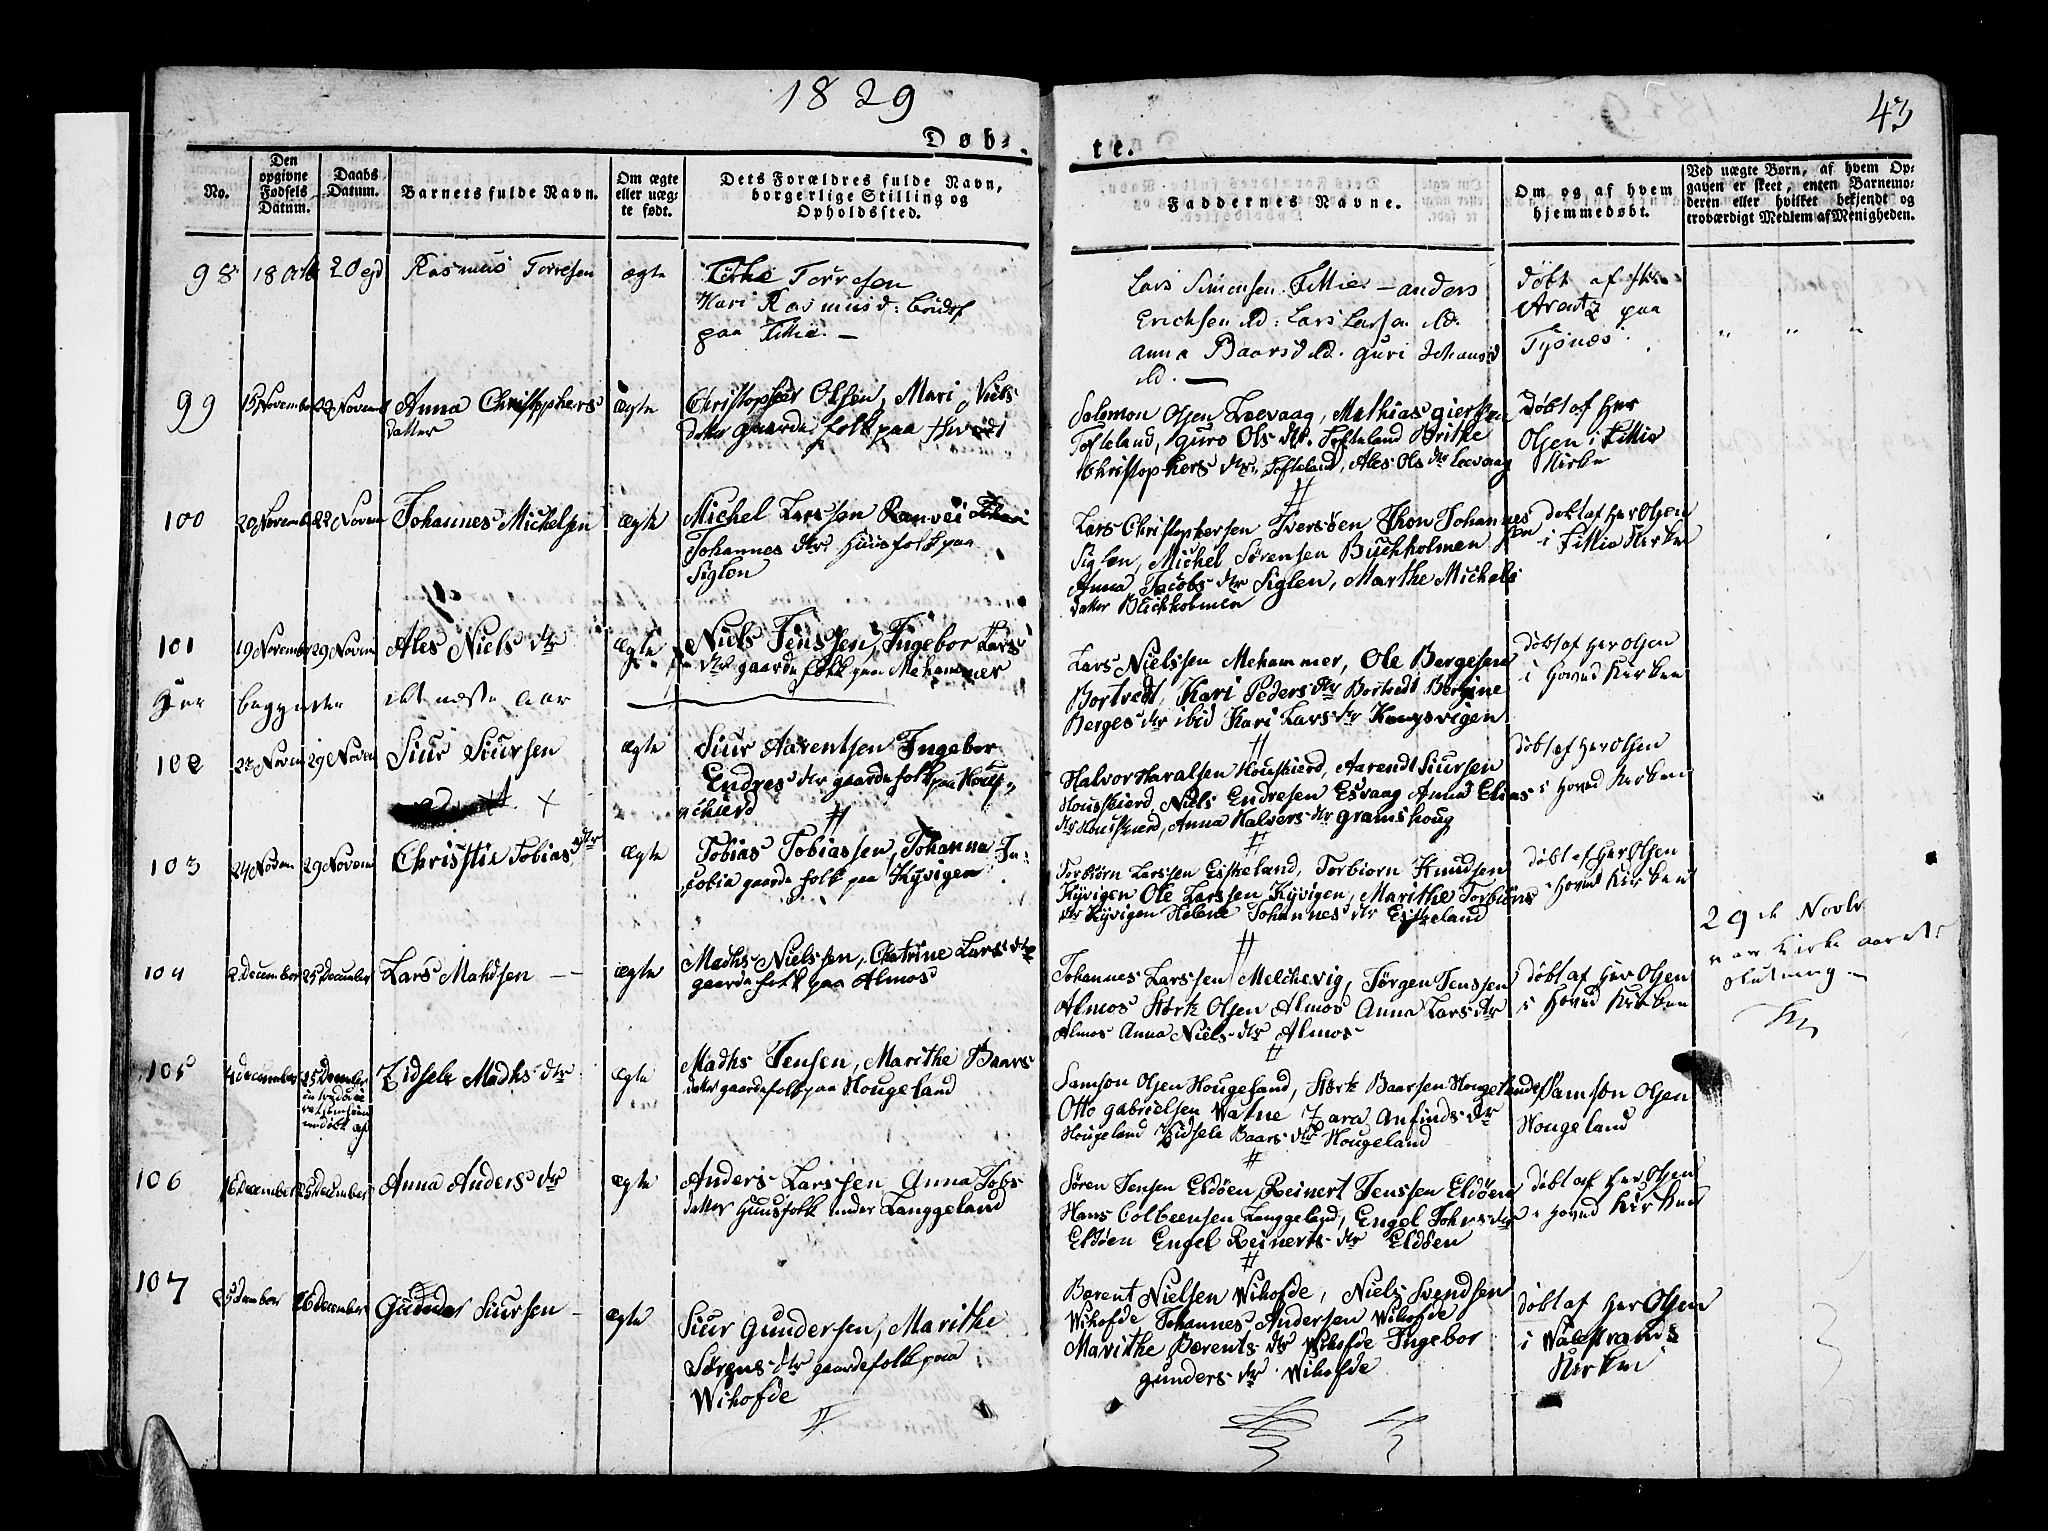 1829
43
Døb-
te.
No.
Den opgivne Fødsels Datum.
Daabs Datum.
Barnets fulde Navn.
Om ægte eller uægte født.
Dets Forældres fulde Navn, borgerlige Stilling og Opholdssted.
Faddernes Navne.
Om og af hvem hjemmedøbt.
Ved uægte Børn, af hvem Opgaven er skeet, enten Barnemoderen eller hvilket bekjendt og troværdigt Medlem af Menigheden.
98 18 Octb 20 ejd Rasmus Torresen ægte
Torresen
Kari Rasmusd:
paa Fittie. —
Lars Simensen Fittie — Anders
Erichsen ibd: Lars Larsen ibd.
Anna Baarsd ibd. Guri Johansd
ibd. —
døbt af Hr
Arentz paa
Tysnes.
" " "
99 15 November 22 Novem Anna Christophers
datter
ægte
Christopher Olsen, Mari Niels
datter gaardefolk paa
Salemon Olsen Leevaag, Mathias Giersen
Tofteland, Guro Ols dtr. Tofteland Brithe
Christophers dtr. Tofteland, Ales Ols dtr Leevaag
døbt af Her
Olsen i Fittie
Kirke
100 20 Novemb 22 Novem Johannes Michelsen ægte
Michel Larssen Ranvei
Johannes dtr Huusfolk paa
Siglen
Lars Christophersen Iversöen Thon Johannes
sen
Siglen, Michel Sørensen Buchholmen
Anna Jacobs dtr Siglen, Marthe Michels
datter Buchholmen
døbt af Her Olsen
i Fittie Kirke
101 19 November 29 Novem Ales Niels dtr ægte
Niels Jenssen, Ingebor Lars
dtr gaardefolk paa Mehammer
Lars Nielssen Mehammer, Ole Bergesen
Bortvedt, Kari Peders dtr Bortvedt Bergine
Berges dtr ibid Kari Lars dtr Kongsvigen
døbt af Her Olsen
i Hoved Kirken
Her begynder det næste aar
102 22 Novem 29 Novem Siur Siursen ægte
Siur Aarentsen Ingebor
Endres dtr gaardefolk paa Hous-
schierd
Halvor Haralsen Houskierd, Aarendt Siursen
Houskierd, Niels Endresen Esvaag Anna Elias
dtr Houskierd, Anna Halvers dtr Gramshoug
døbt af Her Olsen
i Hoved Kirken
103 24 Novem 29 Novem Christie Tobias dtr ægte
Tobias Tobiassen, Johanna Ja-
cobia gaardefolk paa Kyvigen
Torbiørn Larssen Eskeland, Torbiorn Knudsen
Kyvigen Ole Larssen Kyvigen, Marithe Torbiøns
dtr Kyvigen Helene Johannes dtr Eskeland
døbt af Her Olsen
i Hoved Kirken
29de Novbr
var Kirke aarets
slutning
104 2 December 25 December Lars Mahdsen — ægte
Madhs Nielssen, Chatrine Lars dtr
gaardefolk paa Almos
Johannes Larssen Melchevig, Jørgen Jenssen
Almos Størk Olsen Almos Anna Lars dtr
Almos Anna Niels dtr Almos
døbt af Her Olsen
i Hoved Kirken
105 December 25 December
Zidsele Madhs dtr ægte
Madhs Jensen, Marithe Baars
datter gaardefolk paa Hougeland
Samson Olsen Hougeland, Størk Baarsen Hougeland
Otto Gabrielsen Watne Zara Anfinds dtr
Hougeland Zidsele Baars dtr Hougeland
Samson Olsen
Hougeland
106 16 December 25 December Anna Anders dtr ægte
Anders Larssen Anna Jobs
datter Huusfolk under Langgeland
Søren Jensen Eldøen Reinert Jenssen Eldøen
Hans Colbeensen Langgeland, Engel Johns dtr
Eldøen Engel Reinerts dtr Eldøen
døbt af Her Olsen
i Hoved Kirken
107 26 December Gunder Siursen — ægte
Siur Gundersen, Marithe
Sørens dtr gaardefolk paa
Wihofde
Barent Nielsen Wihofde, Niels Svendsen
Wihofde Johannes Andersen Wihofde
Marithe Barents dtr Wihofde Ingebor
Gunders dtr Wihofde
døbt af Her Olsen
i Walestrands
Kirken